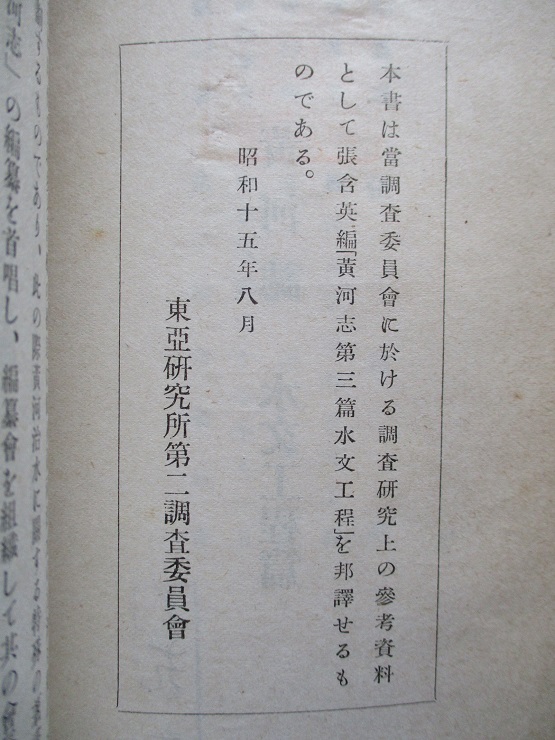 本書は當調査委員會に於ける調査硏究上の參考資料
として張含英編「黃河志第三篇水文工程」を邦譯せるも
のである。
昭和十五年八月
東亞硏究所第二調査委員會
の編纂を首唱し、編纂會を組織して其の
るものであり、此の際黃河治水に關する